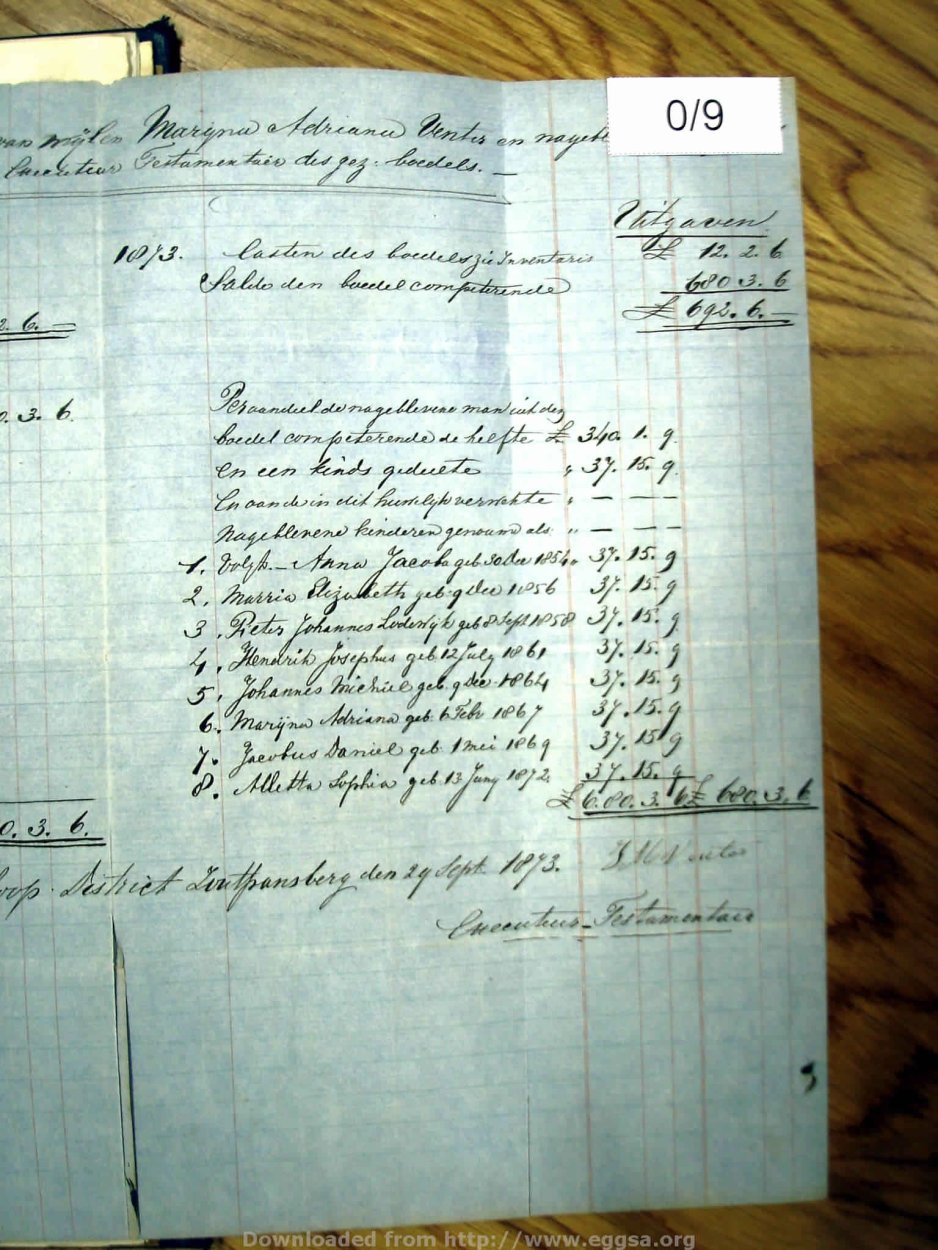 0/9
van wijlen Maryna Adriana Venter en nagebl
Executeur Testamentair des gez. boedels. —
Uitgaven
1873. lasten des boedels zie Inventaris £ 12. 2. 6
Saldo den boedel competerende 680 3. 6
£ 692. 6. —
2. 6. —
0. 3. 6.
Per aandeel de nageblevene man uit dez
boedel competerende de helfte £ 340. 1. 9.
en een kinds gedeelte " 37. 15. 9.
En aan de in dit huwlyk verwekte " — — —
Nageblevene kinderen genaamd als " — — —
1. Volgt. — Anna Jacoba geb 30 Dec 1854 " 37. 15. 9
2. Marria Elizabeth geb 9 Dec 1856 37. 15. 9
3. Pieter Johannes Lodewyk geb 8 Sept 1858 37. 15. 9
4. Hendrik Josephus geb 12 July 1861 37. 15. 9
5. Johannes Michiel geb. 9 Dec 1864 37. 15. 9
6. Marijna Adriana geb. 6 Febr 1867 37. 15. 9
7. Jacobus Daniel geb 1 mei 1869 37. 15 9
8. Alletta Sophia geb 13 Juny 1872 37. 15. 9
£ 680. 3. 6 £ 680. 3. 6
0. 3. 6.
oop. District Zoutpansberg den 29 Sept. 1873. Venter
Executeur-Testamentair
Downloaded from http://www.eggsa.org